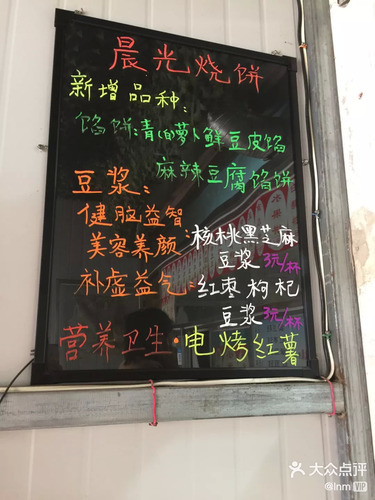 晨光烧饼
新增品种:
馅饼:青(白)萝卜鲜豆皮馅
麻辣豆腐馅饼
豆浆:
健脑益智:
美容养颜:核桃黑芝麻
豆浆3元/杯
补虚益气:红枣枸杞
豆浆3元/杯
营养卫生·电烤红薯
大众点评
@lnm VIP